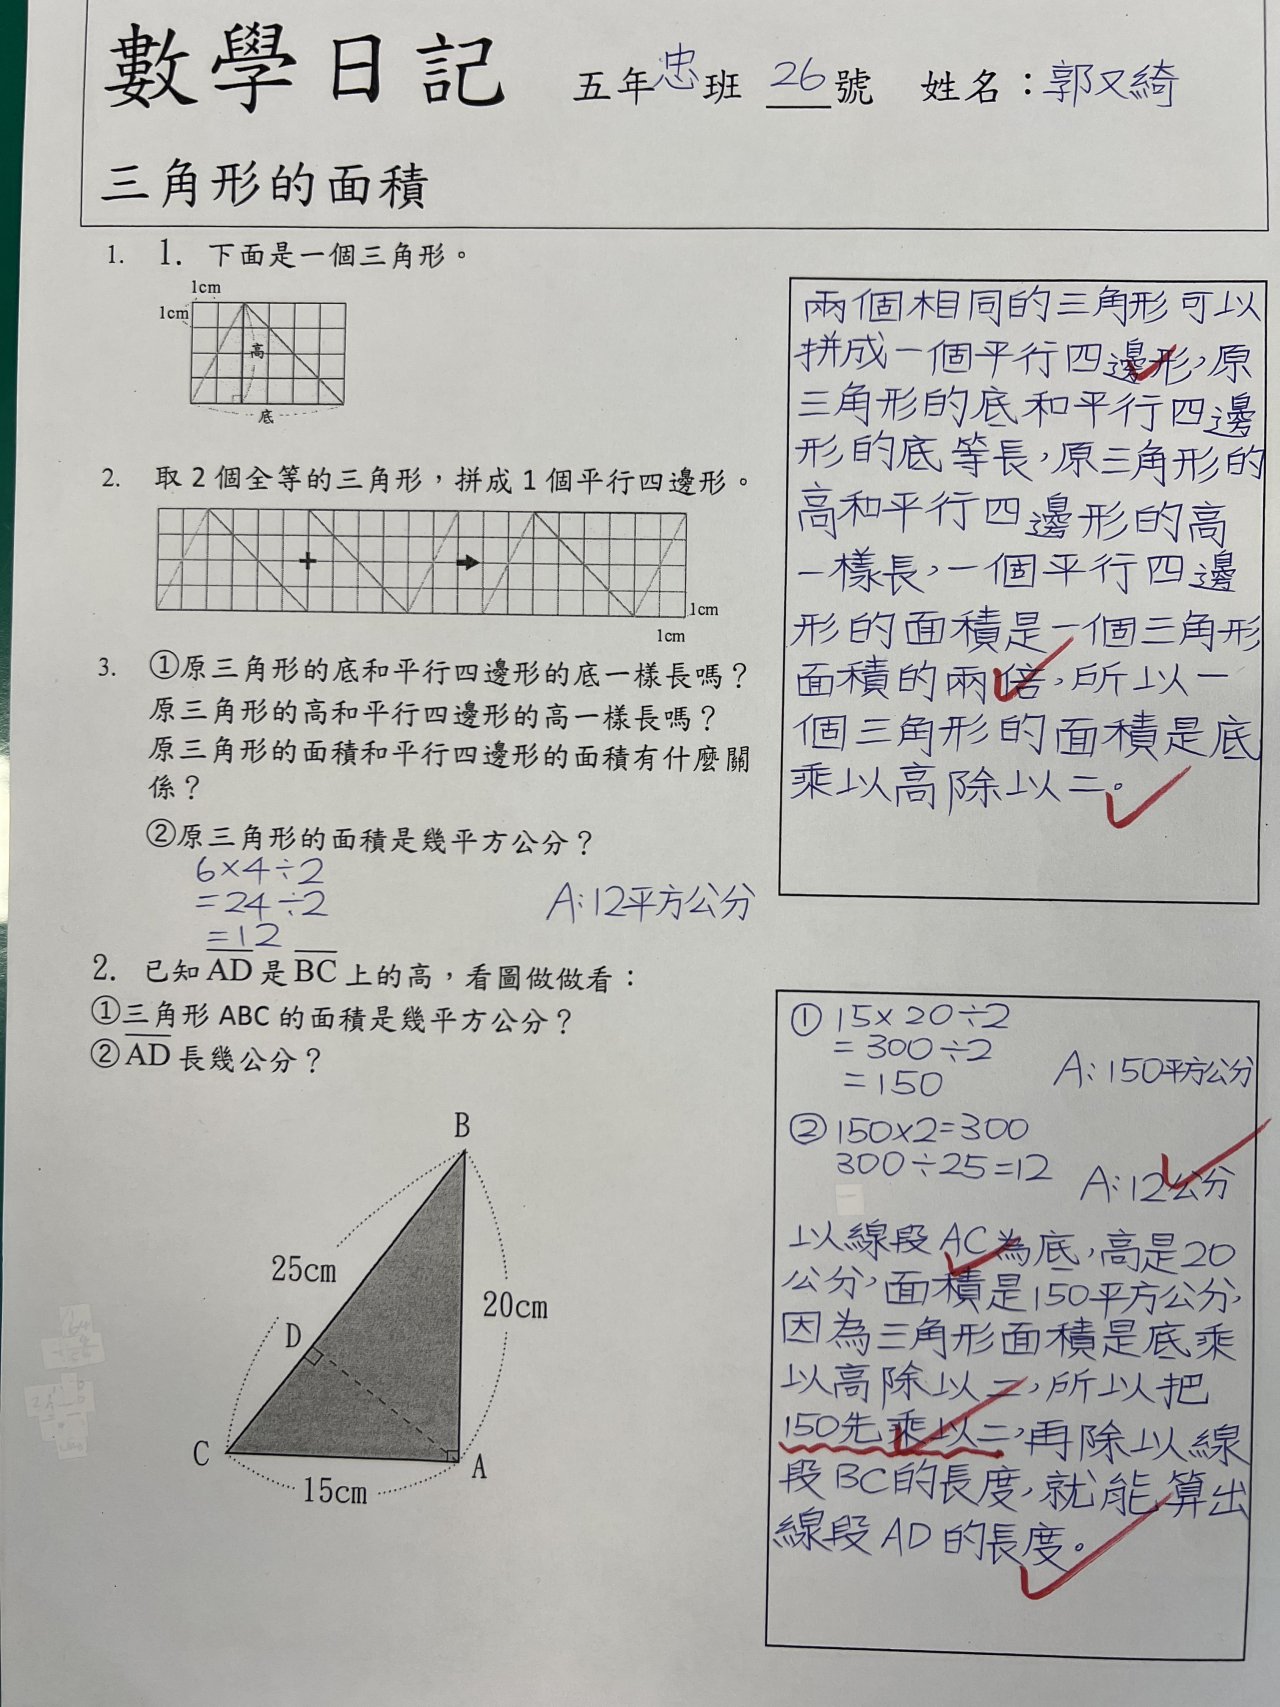 數學日記 五年忠班 26號 姓名：郭又綺
三角形的面積
1. 1. 下面是一個三角形。
1cm
1cm
高
底
2. 取2個全等的三角形，拼成1個平行四邊形。
1cm
1cm
3. ①原三角形的底和平行四邊形的底一樣長嗎？
原三角形的高和平行四邊形的高一樣長嗎？
原三角形的面積和平行四邊形的面積有什麼關
係？
②原三角形的面積是幾平方公分？
6×4÷2
=24÷2
=12
A:12平方公分
兩個相同的三角形可以
拼成一個平行四邊形，原
三角形的底和平行四邊
形的底等長，原三角形的
高和平行四邊形的高
一樣長，一個平行四邊
形的面積是一個三角形
面積的兩倍，所以一
個三角形的面積是底
乘以高除以二。
2. 已知AD是BC上的高，看圖做做看：
①三角形ABC的面積是幾平方公分？
②AD長幾公分？
B
25cm
20cm
D
C
A
15cm
① 15×20÷2
=300÷2
=150
A:150平方公分
② 150×2=300
300÷25=12
A:12公分
以線段AC為底，高是20
公分，面積是150平方公分，
因為三角形面積是底乘
以高除以二，所以把
150先乘以二，再除以線
段BC的長度，就能算出
線段AD的長度。